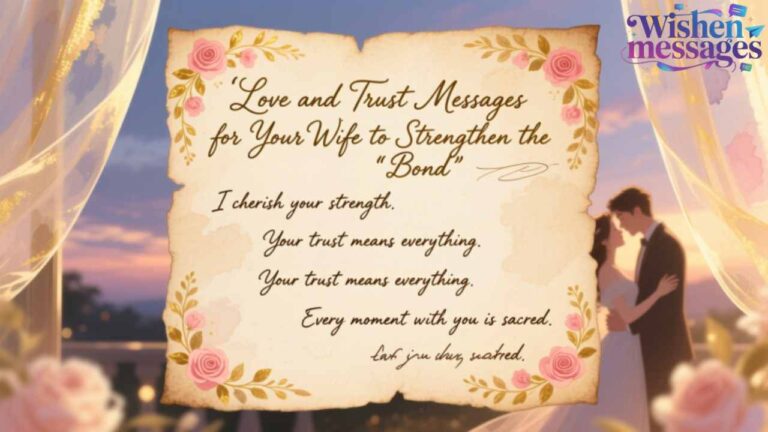 Wishen
messages
‘Love and Trust Messages
for Your Wife to Strengthen the
“Bond”
I cherish your strength.
Your trust means everything.
Your trust means everything.
Every moment with you is sacred.